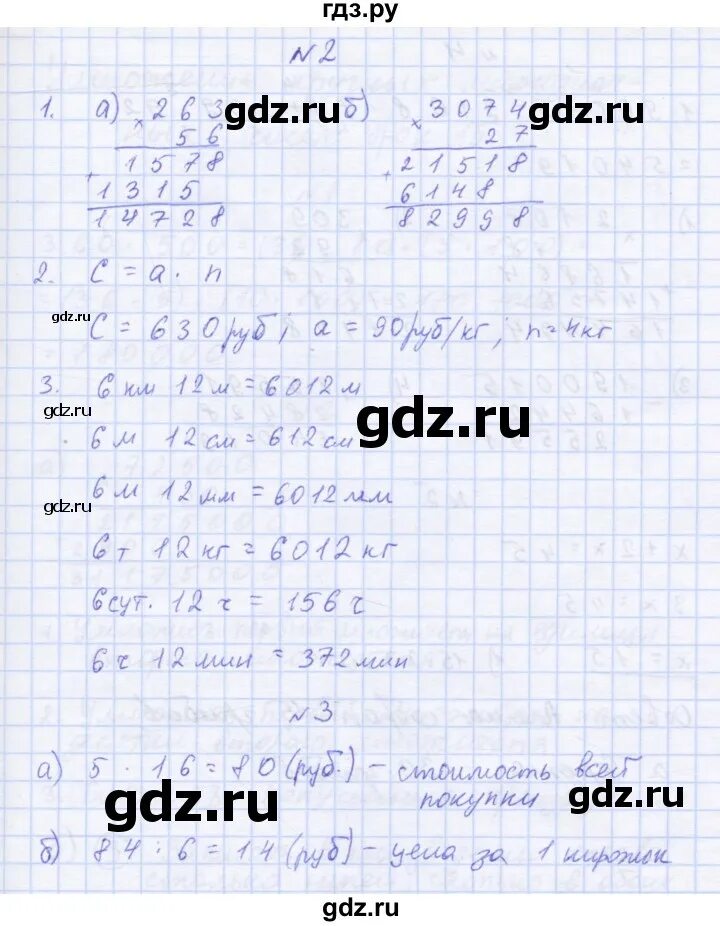 гдз.ру
№2
1. а) × 263 gdz.ru б) × 3074 gdz.ru
56 27
1578 21518
+ +
1315 6148
14728 82998
2. C = a · n
gdz.ru
C = 630 руб; a = 90 руб/кг; n = 4 кг
3. 6 км 12 м = 6012 м
gdz.ru
gdz.ru
6 м 12 см = 612 см
6 м 12 мм = 6012 мм
gdz.ru
6 т 12 кг = 6012 кг
6 сут. 12 ч = 156 ч
6 ч 12 мин = 372 мин
№3
а) 5 · 16 = 80 (руб.) – стоимость всей
покупки
gdz.ru
gdz.ru
б) 84 : 6 = 14 (руб) – цена за 1 пирожок
gdz.ru